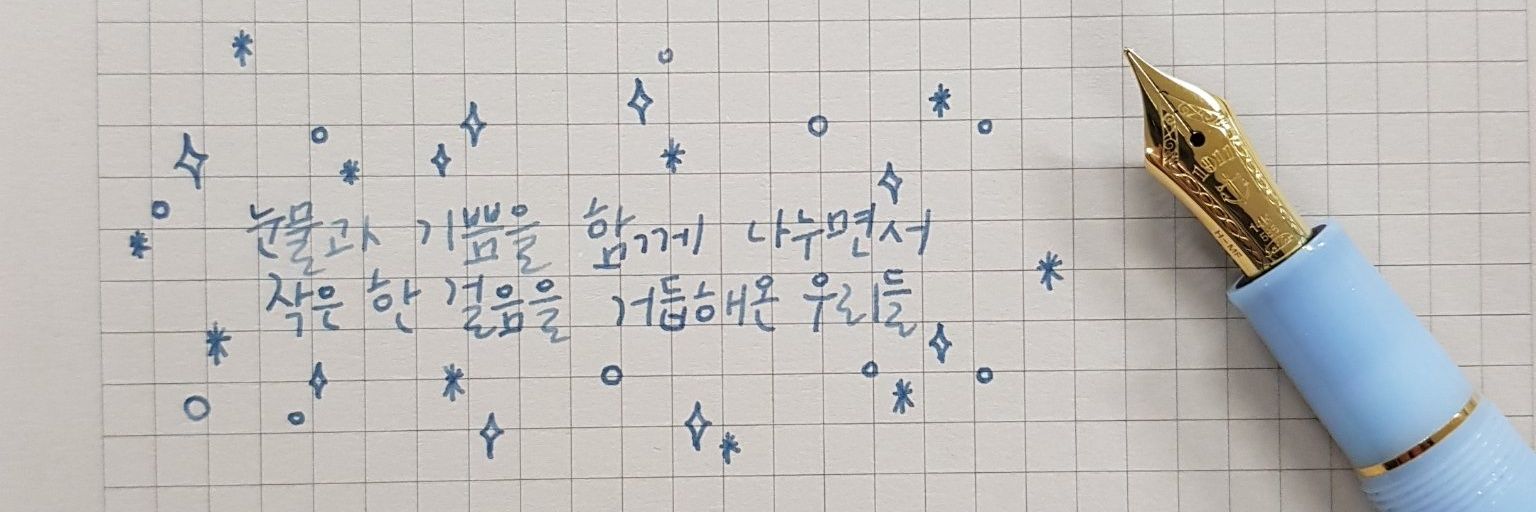 눈물과 기쁨을 함께 나누면서
작은 한 걸음을 거듭해온 우리들
1911
H-MF